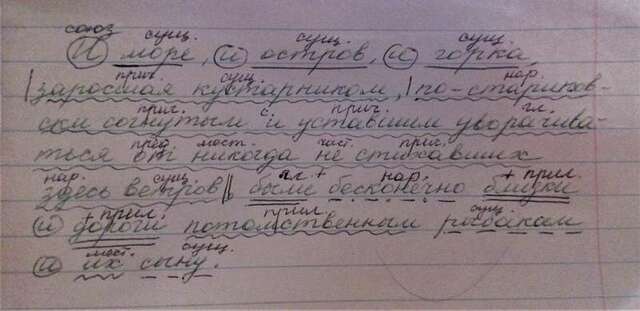 союз сущ. сущ. сущ.
И море, и остров, и горка,
прич. сущ. нар.
заросшая кустарником, по-стариков-
прич. с. прич. гл.
ски согнутым и уставшим уворачива-
пред. мест. част. прич.
ться от никогда не стихавших
нар. сущ. гл. + нар. + прил.
здесь ветров были бесконечно близки
+ прил. прил. сущ.
и дороги потомственным рыбакам
мест. сущ.
и их сыну.